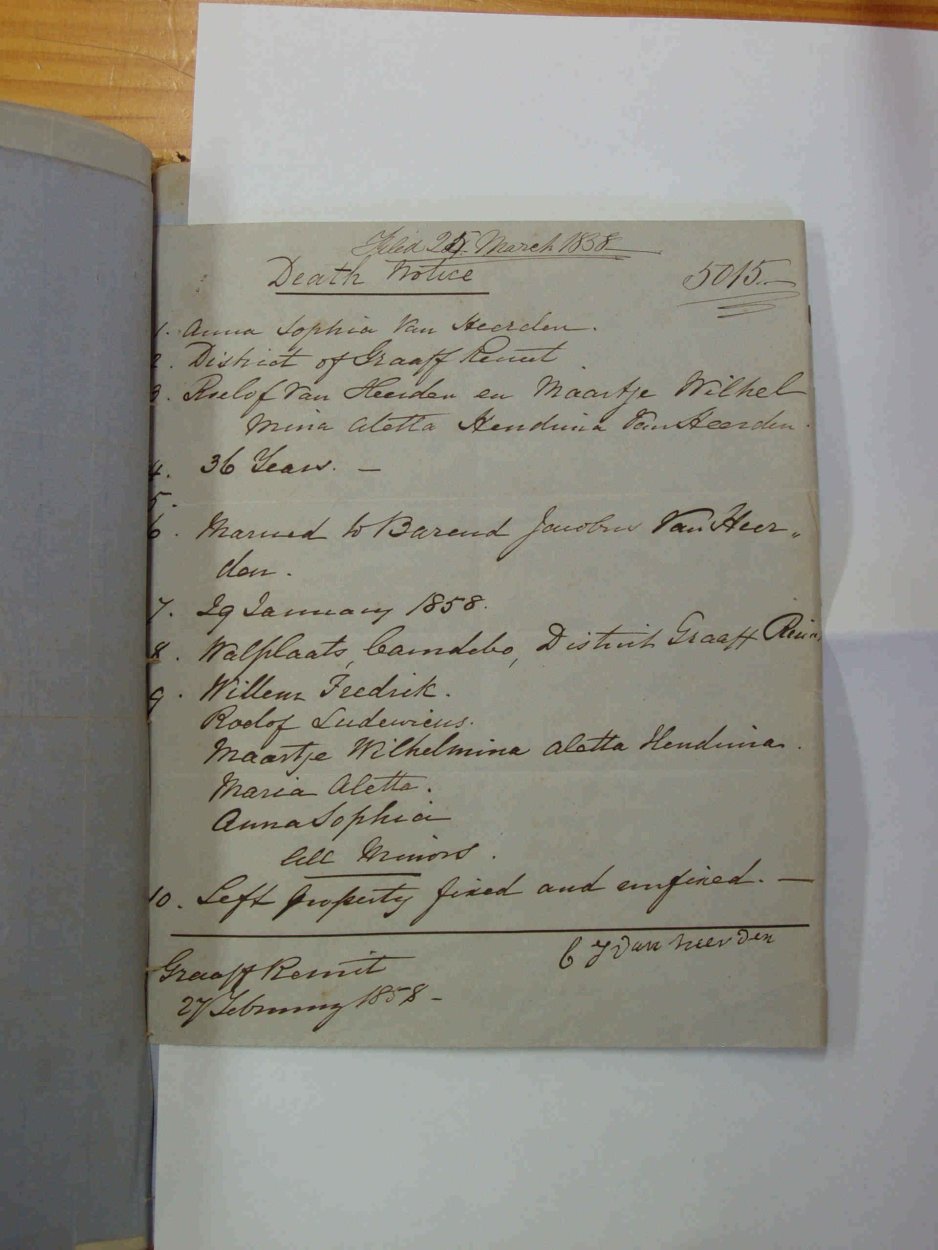 Filed 25 March 1858
Death Notice 5015
1. Anna Sophia Van Heerden.
2. District of Graaff Reinet
3. Roelof Van Heerden en Maartje Wilhel
mina Aletta Hendrina Van Heerden.
4. 36 Years. —
5.
6. Married to Barend Jacobus Van Heer„
den.
7. 29 January 1858.
8. Walplaats, Camdebo, District Graaff Rein
9. Willem Fredrik.
Roelof Ludewicus.
Maartje Wilhelmina Aletta Hendrina.
Maria Aletta.
Anna Sophia
All Minors.
10. Left property fixed and unfixed. —
C J Van Heerden
Graaff Reinet
27 February 1858 —